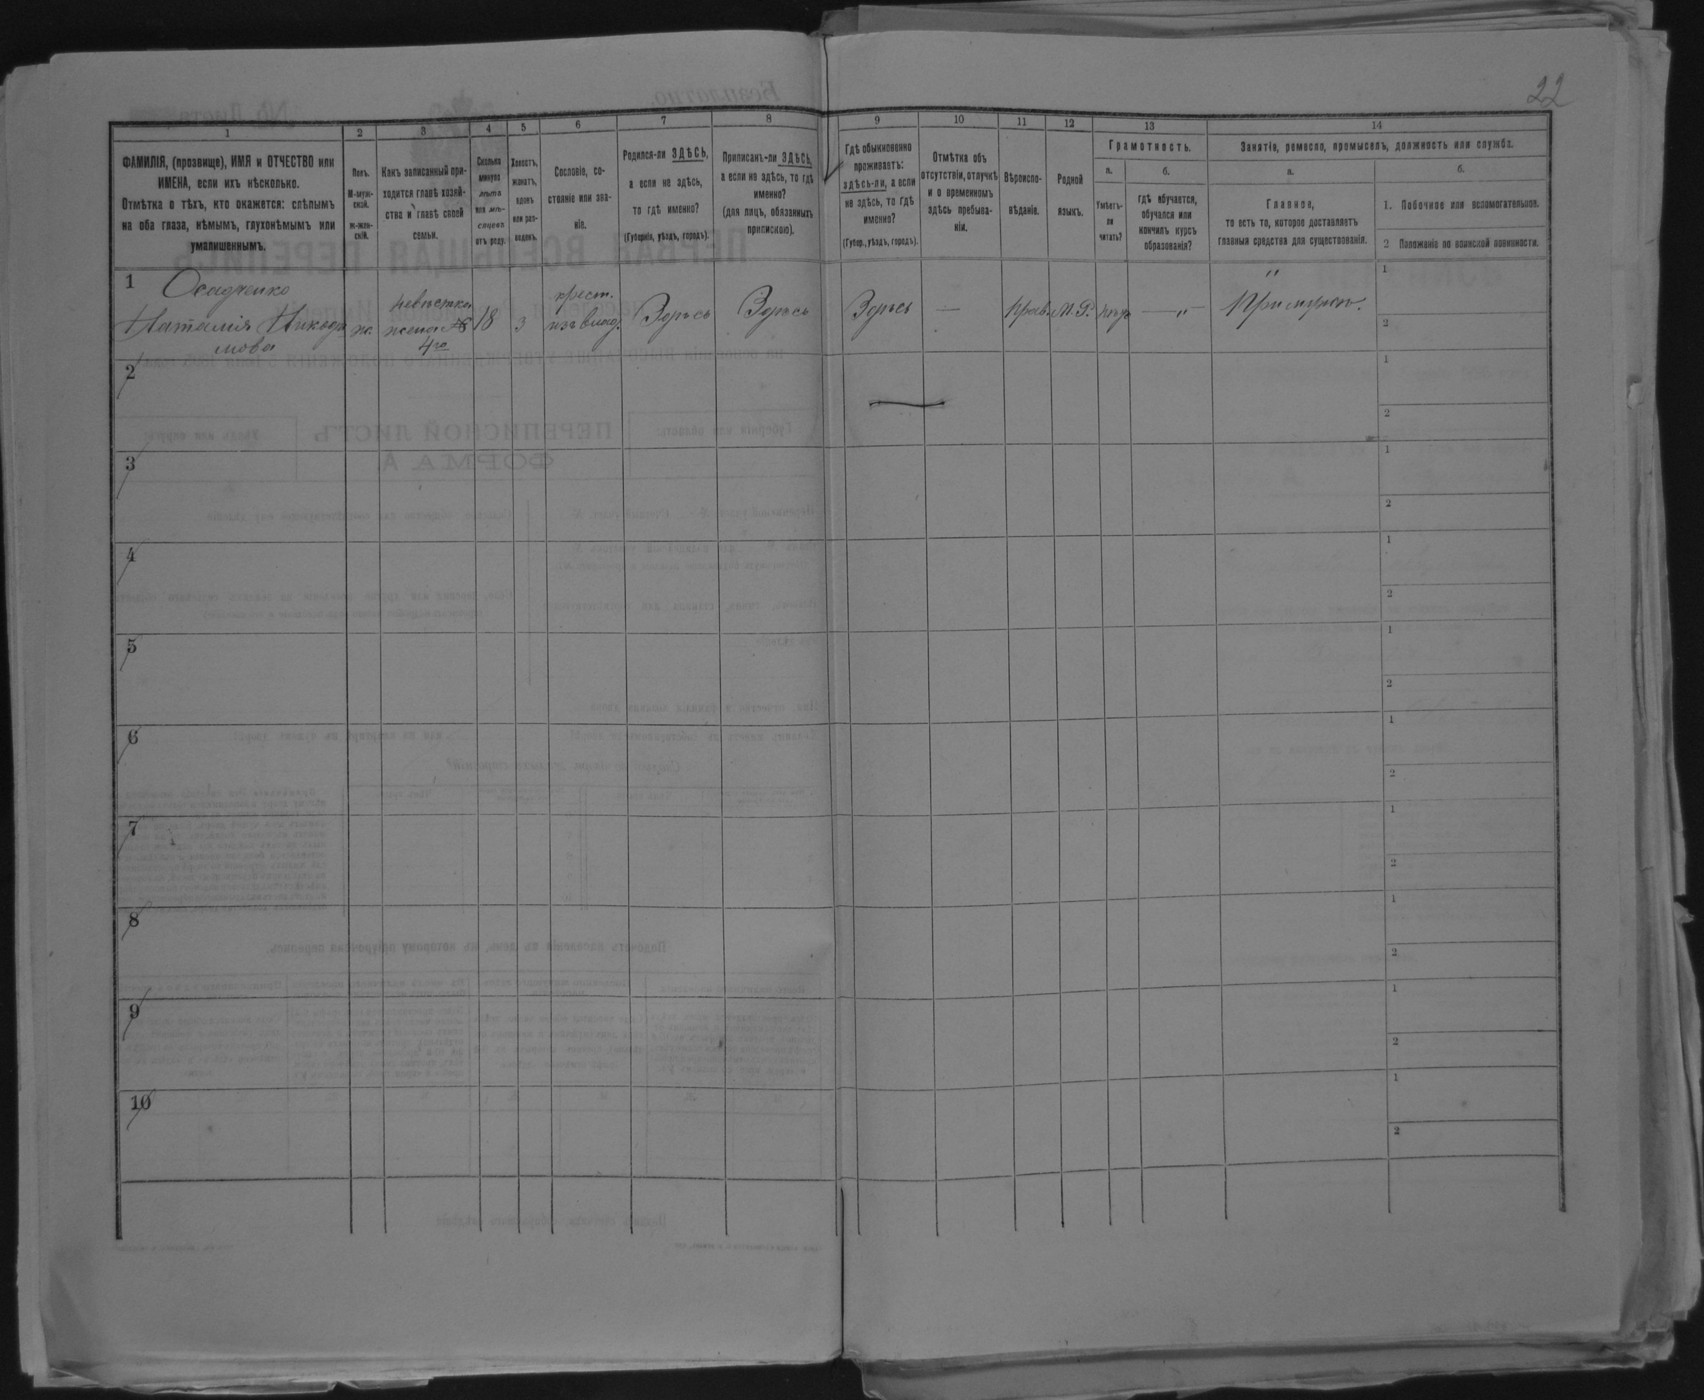 22
1
2
3
4
5
6
7
8
9
10
11
12
13
14
ФАМИЛІЯ, (прозвище), ИМЯ и ОТЧЕСТВО или
ИМЕНА, если ихъ нѣсколько.
Отмѣтка о тѣхъ, кто окажется: слѣпымъ
на оба глаза, нѣмымъ, глухонѣмымъ или
умалишеннымъ.
Полъ.
М-муж-
ской.
Ж-жен-
скій.
Какъ записанный при-
ходится главѣ хозяй-
ства и главѣ своей
семьи.
Сколько
минуло
лѣтъ
или мѣ-
сяцевъ
отъ роду.
Холостъ,
женатъ,
вдовъ
или раз-
веденъ.
Сословіе, со-
стояніе или зва-
ніе.
Родился-ли ЗДѢСЬ,
а если не здѣсь,
то гдѣ именно?
(Губернія, уѣздъ, городъ).
Приписанъ-ли ЗДѢСЬ,
а если не здѣсь, то гдѣ
именно?
(для лицъ, обязанныхъ
припискою).
Гдѣ обыкновенно
проживаетъ:
здѣсь-ли, а если
не здѣсь, то гдѣ
именно?
(Губер., уѣздъ, городъ).
Отмѣтка объ
отсутствіи, отлучкѣ
и о временномъ
здѣсь пребыва-
ніи.
Вѣроиспо-
вѣданіе.
Родной
языкъ.
Грамотность.
а.
Умѣетъ-
ли
читать?
б.
гдѣ обучается,
обучался или
кончилъ курсъ
образованія?
Занятіе, ремесло, промыселъ, должность или служба.
а.
Главное,
то есть то, которое доставляетъ
главныя средства для существованія.
б.
1. Побочное или вспомогательное.
2 Положеніе по воинской повинности.
1
Осадченко
Наталія Никоди
мова
ж
невѣстка
жена №
4го
18
з
крест.
изъ влад.
Здѣсь
Здѣсь
Здѣсь
—
Прав.
М.Р.
нѣт
— „ —
„
При мужѣ.
1
2
2
1
2
3
1
2
4
1
2
5
1
2
6
1
2
7
1
2
8
1
2
9
1
2
10
1
2